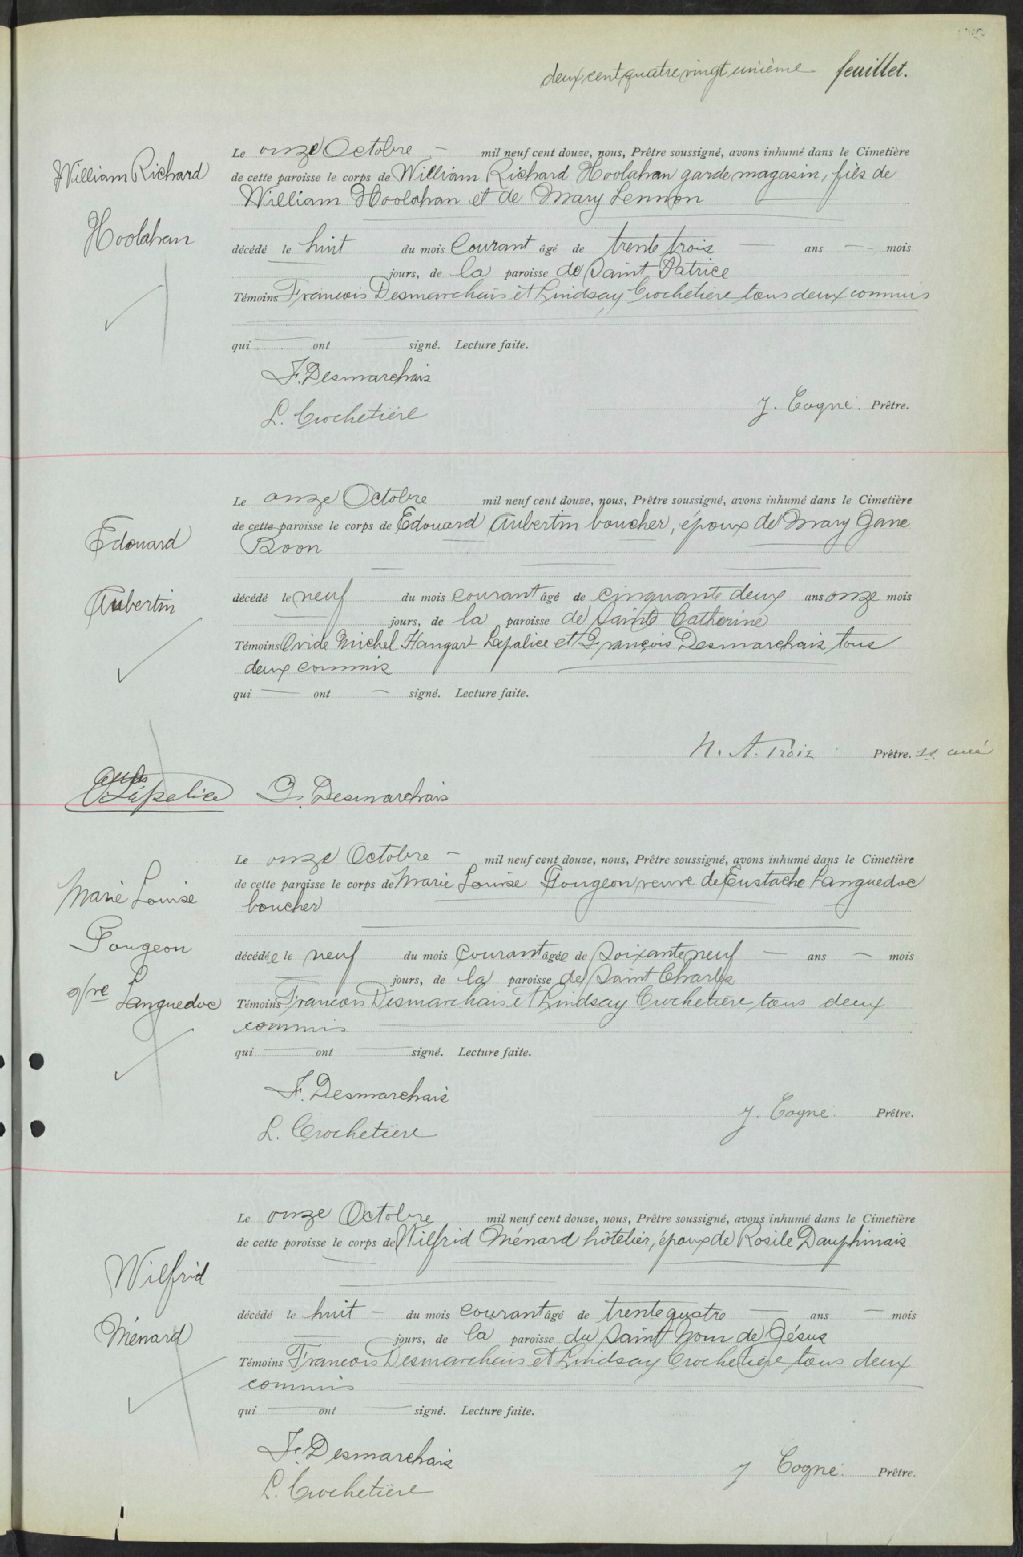 deux cent quatre vingt unième feuillet.
William Richard
Hoolahan
Le onze Octobre — mil neuf cent douze, nous, Prêtre soussigné, avons inhumé dans le Cimetière
de cette paroisse le corps de William Richard Hoolahan garde magasin, fils de
William Hoolahan et de Mary Lennon
décédé le huit du mois courant âgé de trente trois — ans — mois
jours, de la paroisse de Saint Patrice
Témoins Francois Desmarchais et Lindsay Crochetiere tous deux commis
qui ont signé. Lecture faite.
F. Desmarchais
L. Crochetière
J. Cogné. Prêtre.
Edouard
Aubertin
Le onze Octobre mil neuf cent douze, nous, Prêtre soussigné, avons inhumé dans le Cimetière
de cette paroisse le corps de Edouard Aubertin boucher, époux de Mary Jane
Boon
décédé le neuf du mois courant âgé de cinquante deux ans onze mois
jours, de la paroisse de Sainte Catherine
Témoins Ovide Michel Hangart Lapalice et François Desmarchais tous
deux commis
qui — ont — signé. Lecture faite.
N. A. Troie Prêtre. curé
Lapalice
F. Desmarchais
Marie Louise
Gougeon
Languedoc
Le onze Octobre — mil neuf cent douze, nous, Prêtre soussigné, avons inhumé dans le Cimetière
de cette paroisse le corps de Marie Louise Gougeon veuve de Eustache Languedoc
boucher
décédée le neuf du mois courant âgée de soixante neuf — ans — mois
jours, de la paroisse de Saint Charles
Témoins Francois Desmarchais et Lindsay Crochetiere tous deux
commis
qui — ont — signé. Lecture faite.
F. Desmarchais
L. Crochetiere
J. Cogné. Prêtre.
Wilfrid
Ménard
Le onze Octobre mil neuf cent douze, nous, Prêtre soussigné, avons inhumé dans le Cimetière
de cette paroisse le corps de Wilfrid Ménard hôtelier, époux de Rosile Dauphinais
décédé le huit — du mois courant âgé de trente quatre — ans — mois
jours, de la paroisse du Saint Nom de Jésus
Témoins Francois Desmarchais et Lindsay Crochetiere tous deux
commis
qui — ont — signé. Lecture faite.
F. Desmarchais
L. Crochetière
J Cogné. Prêtre.